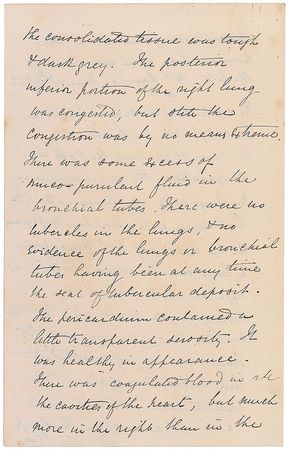 the consolidated tissue was tough
& dark grey. The posterior
inferior portion of the right lung
was congested, but still the
Congestion was by no means Extreme.
There was some Excess of
muco-purulent fluid in the
bronchial tubes. There were no
tubercles in the lungs, & no
Evidence of the lungs or bronchial
tubes having been at any time
the seat of tubercular deposit.
The pericardium contained a
little transparent serosity. It
was healthy in appearance.
There was coagulated blood in all
the cavities of the heart, but much
more in the right than in the